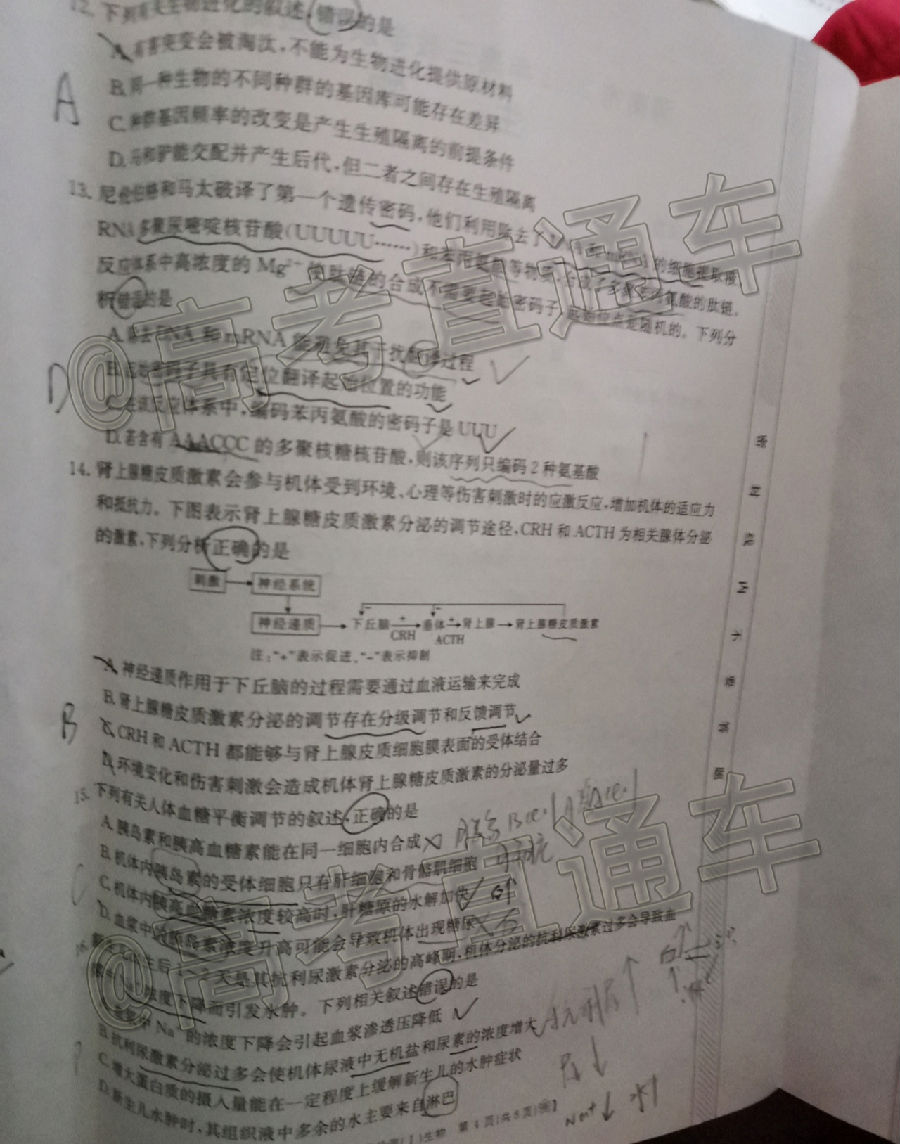 12. 下列有关生物进化的叙述,错误的是
A. 有害突变会被淘汰,不能为生物进化提供原材料
B. 同一种生物的不同种群的基因库可能存在差异
A
C. 种群基因频率的改变是产生生殖隔离的前提条件
D. 马和驴能交配并产生后代,但二者之间存在生殖隔离
13. 尼伦伯格和马太破译了第一个遗传密码,他们利用除去了 的细胞提取液
RNA多聚尿嘧啶核苷酸(UUUUU……)和苯丙氨酸等物质,合成了多聚苯丙氨酸的肽链。
反应体系中高浓度的Mg²⁺使肽链的合成不需要起始密码子, 是随机的。下列分
析错误的是
A. DNA和mRNA能 干扰翻译过程
B. 起始密码子具有定位翻译起始位置的功能
D
C. 在该反应体系中,编码苯丙氨酸的密码子是UUU
D. 若含有AAACCC的多聚核糖核苷酸,则该序列只编码2种氨基酸
14. 肾上腺糖皮质激素会参与机体受到环境、心理等伤害刺激时的应激反应,增加机体的适应力
和抵抗力。下图表示肾上腺糖皮质激素分泌的调节途径,CRH和ACTH为相关腺体分泌
的激素,下列分析正确的是
刺激 神经系统
神经递质 下丘脑 + CRH 垂体 + ACTH 肾上腺 肾上腺糖皮质激素
注:“+”表示促进,“-”表示抑制
A. 神经递质作用于下丘脑的过程需要通过血液运输来完成
B. 肾上腺糖皮质激素分泌的调节存在分级调节和反馈调节
B
C. CRH和ACTH都能够与肾上腺皮质细胞膜表面的受体结合
D. 环境变化和伤害刺激会造成机体肾上腺糖皮质激素的分泌量过多
15. 下列有关人体血糖平衡调节的叙述,正确的是
A. 胰岛素和胰高血糖素能在同一细胞内合成
B. 机体内胰岛素的受体细胞只有肝细胞和骨骼肌细胞
C
C. 机体内胰高血糖素浓度较高时,肝糖原的水解加快
D. 血浆中的胰岛素浓度升高可能会导致机体出现糖尿
16. 生后 天是其抗利尿激素分泌的高峰期,机体分泌的抗利尿激素过多会导致血
浓度下降而引发水肿。下列相关叙述错误的是
A. Na⁺的浓度下降会引起血浆渗透压降低
B. 抗利尿激素分泌过多会使机体尿液中无机盐和尿素的浓度增大
C. 增大蛋白质的摄入量能在一定程度上缓解新生儿的水肿症状
D. 新生儿水肿时,其组织液中多余的水主要来自淋巴
生物 第4页(共8页)
密 封 线 内 不 要 答 题
@高考直通车
@高考直通车